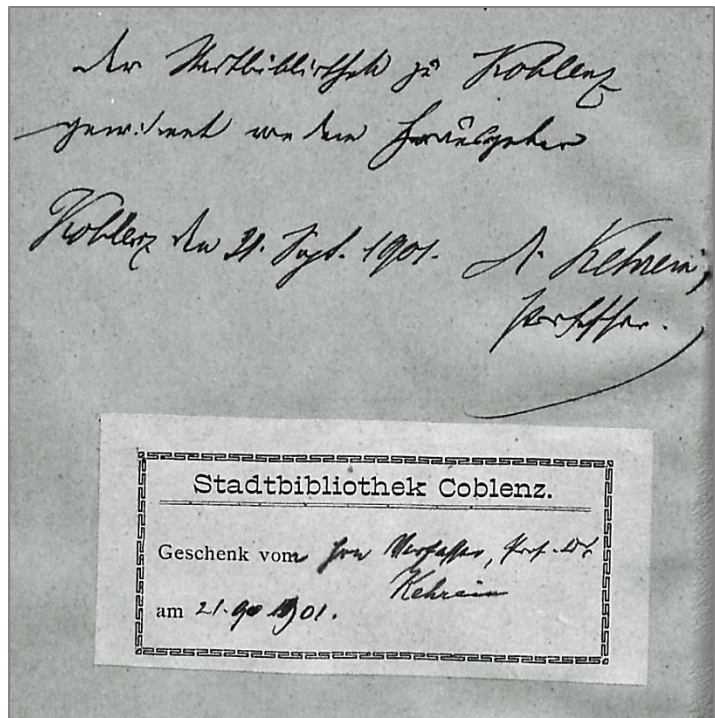 Der Stadtbibliothek zu Koblenz
gewidmet von dem Herausgeber
Koblenz den 21. Sept. 1901. A. Kehrein,
Professor.
Stadtbibliothek Coblenz.
Geschenk vom Hrn Verfasser, Prof. Dr
Kehrein
am 21. 9. 1901.